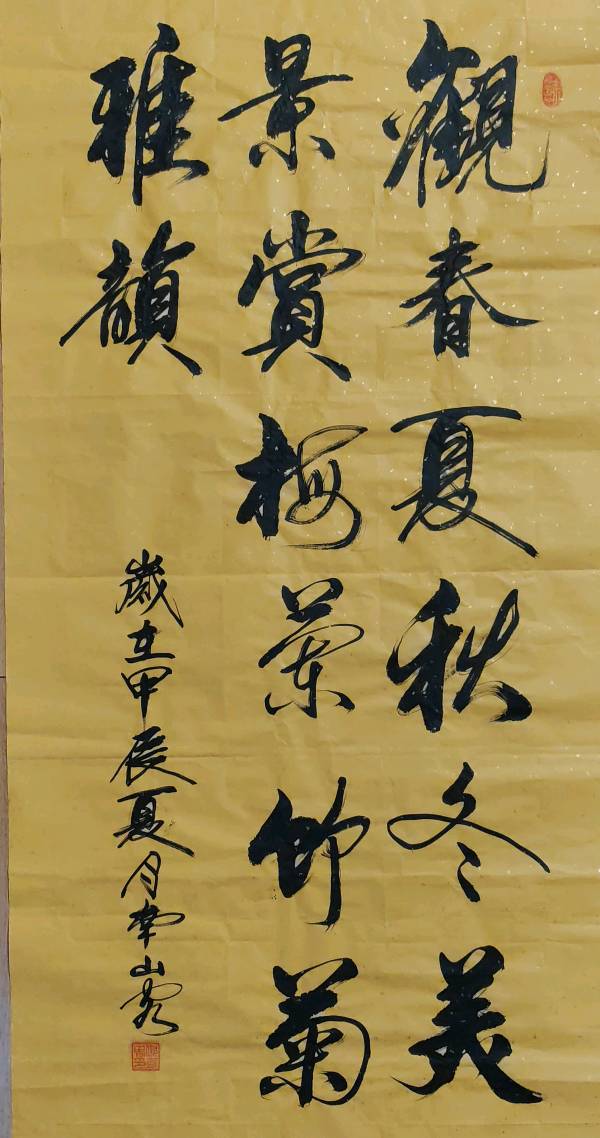 觀春夏秋冬美
景賞梅蘭竹菊
雅韻
歲在甲辰夏月南山客